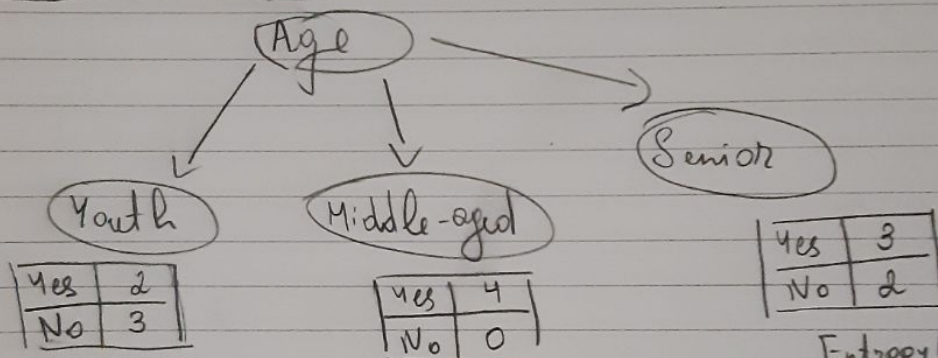 Age
Youth
Middle-aged
Senior
Yes 2
No 3
Yes 4
No 0
Yes 3
No 2
Entropy